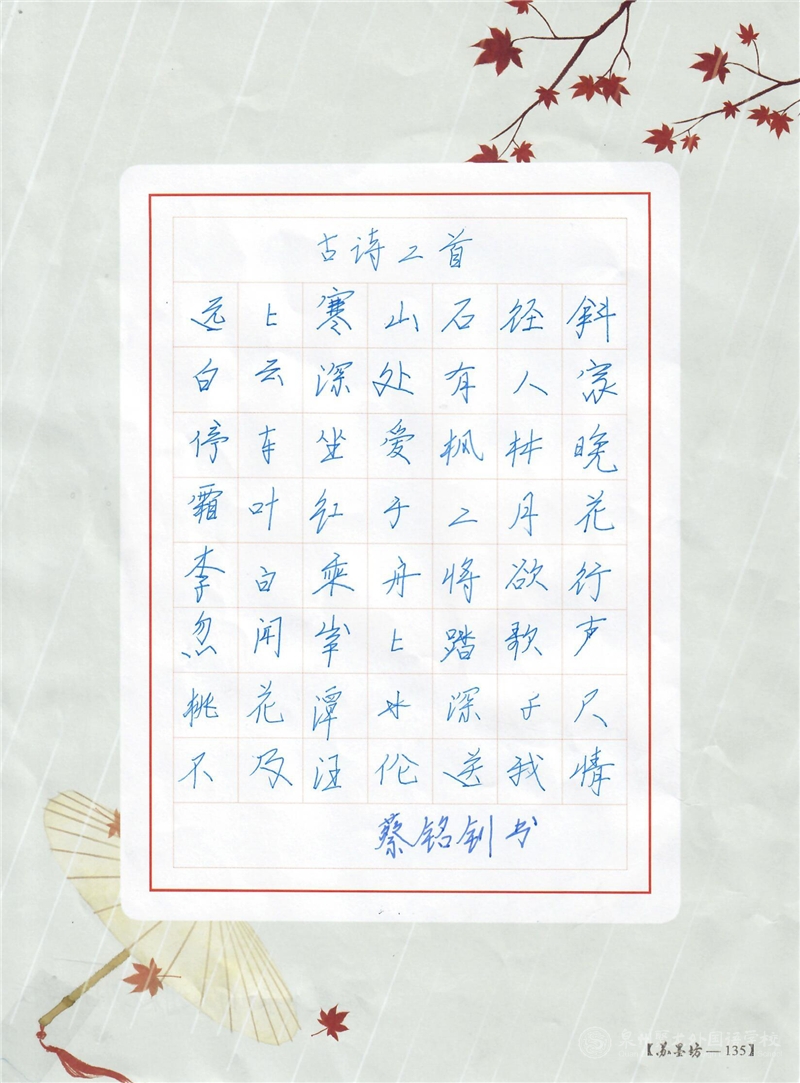 古诗二首
远上寒山石径斜
白云深处有人家
停车坐爱枫林晚
霜叶红于二月花
李白乘舟将欲行
忽闻岸上踏歌声
桃花潭水深千尺
不及汪伦送我情
蔡铭钊书
【苏墨坊—135】